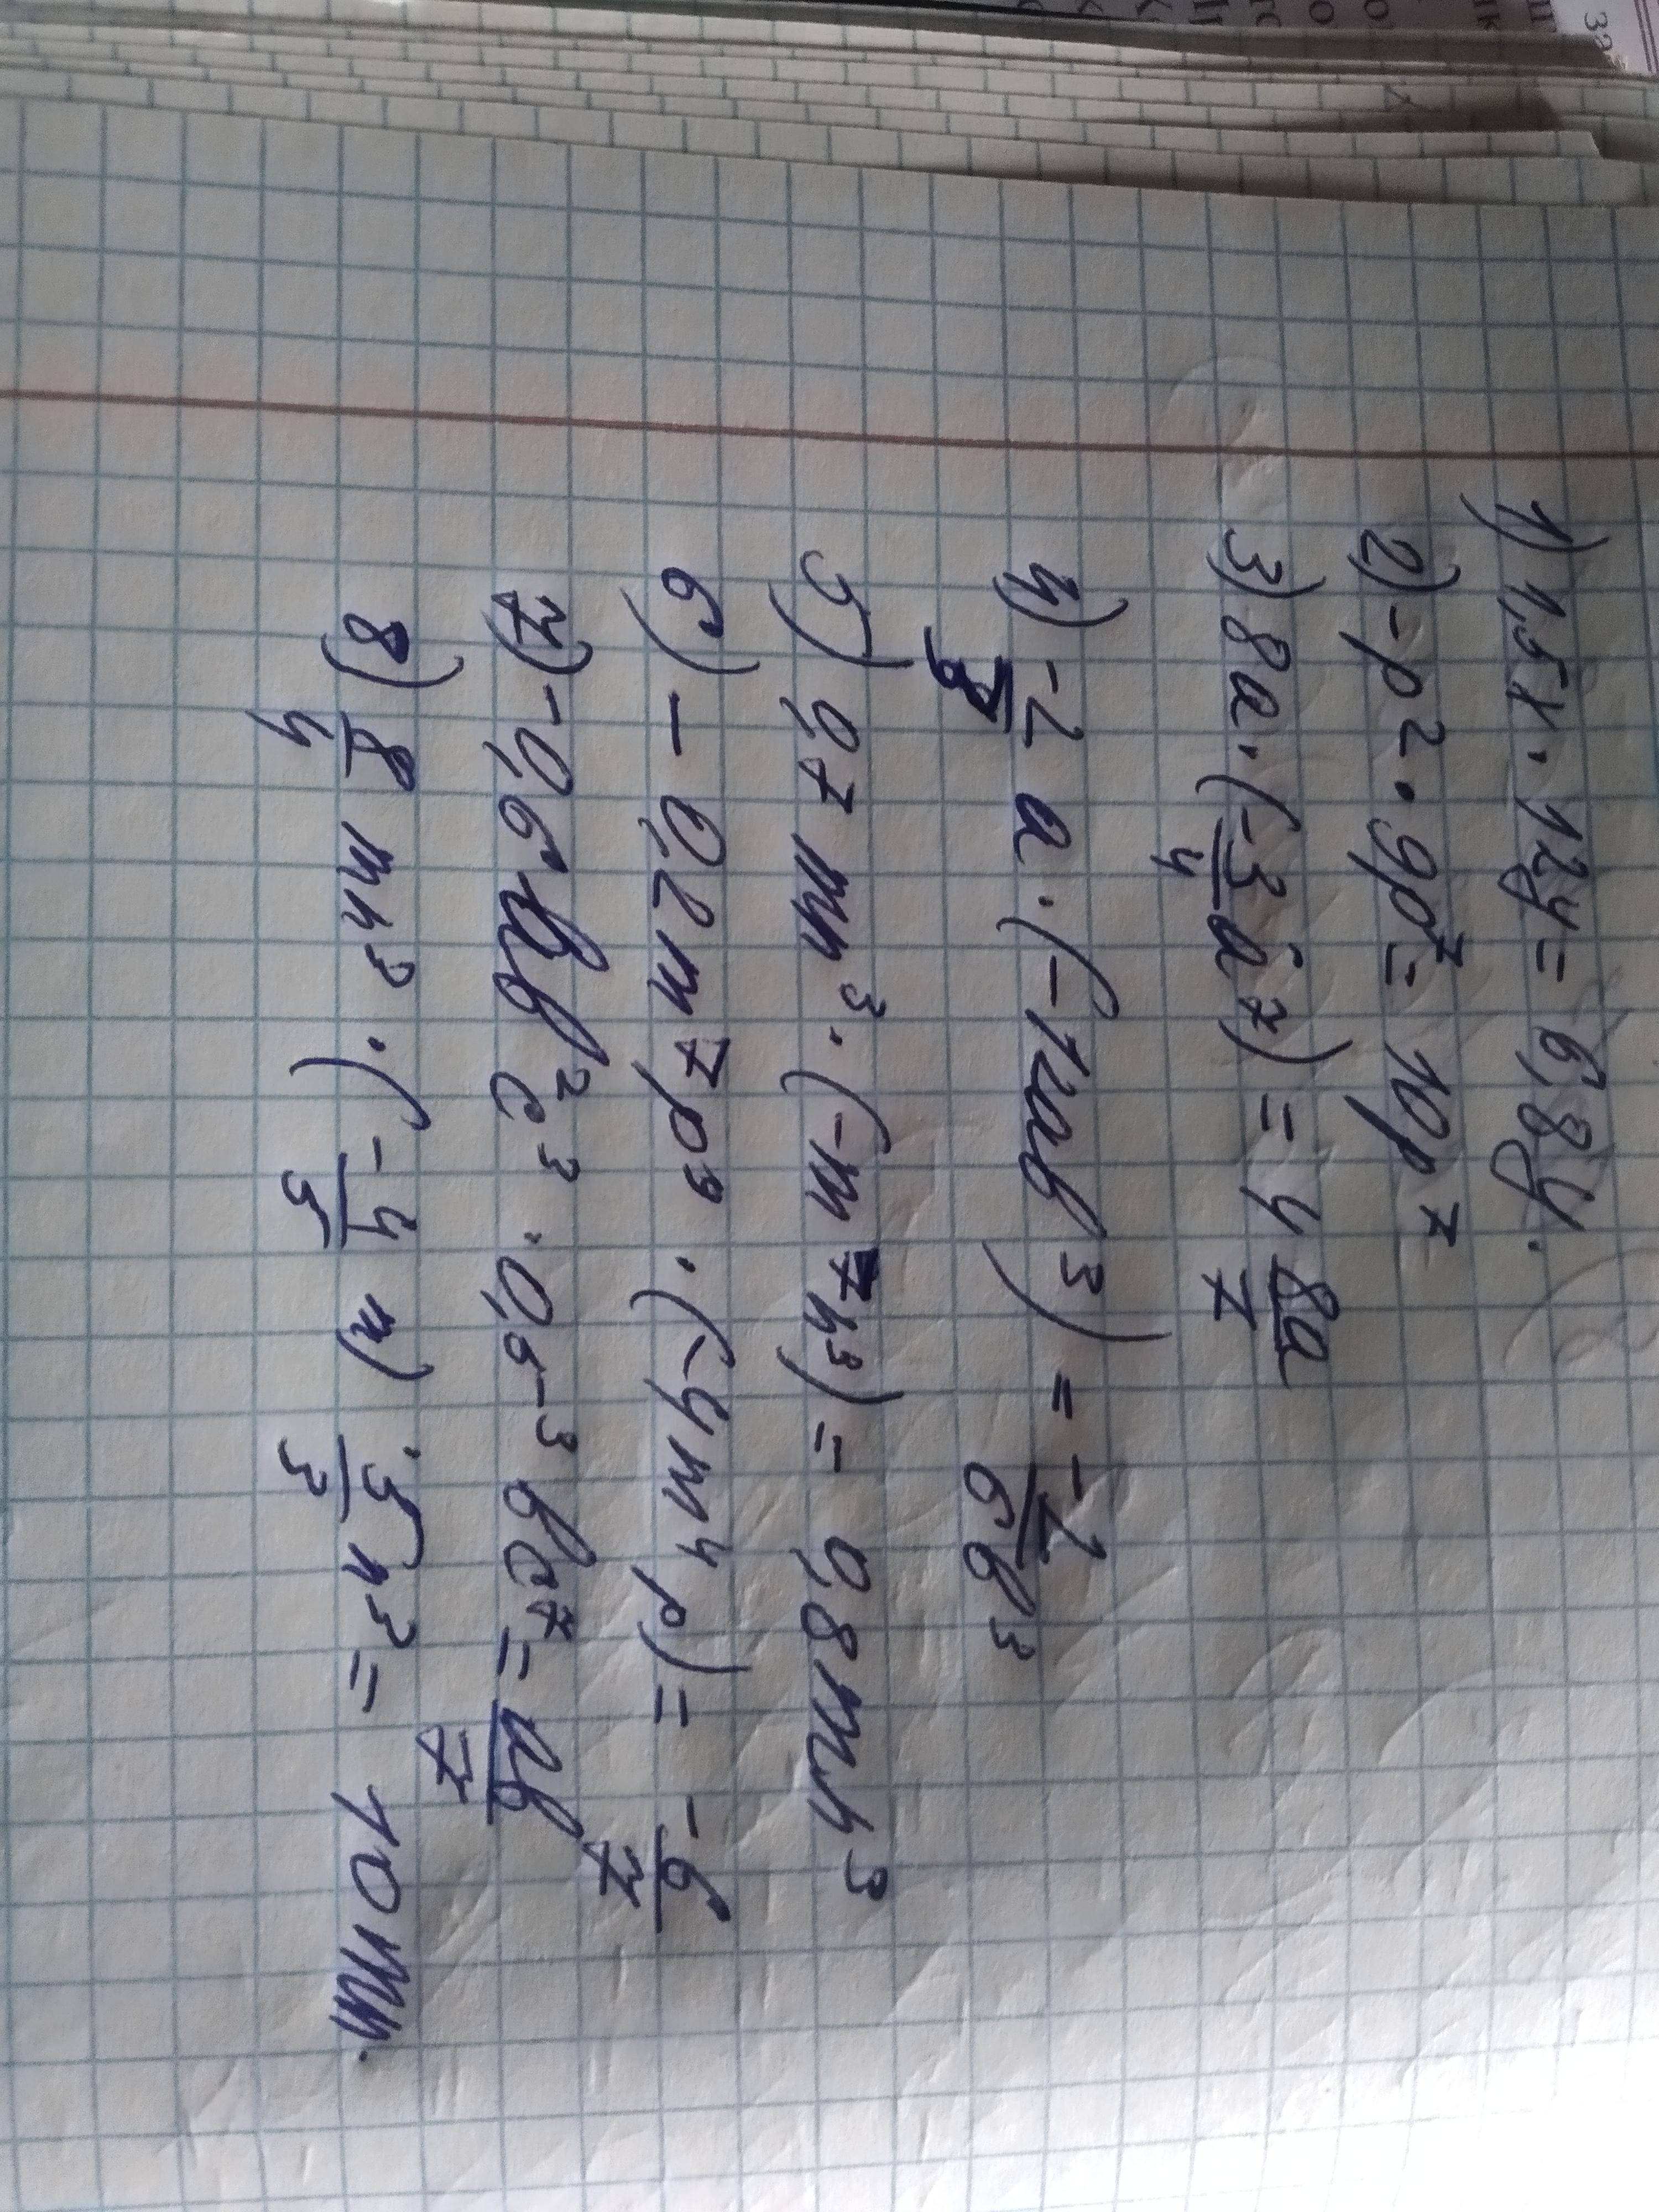 1) 1,5x · 12y = 6,8y.
2) -p² · 9p⁷ = 10p⁷
3) 8a · (-3/4 a⁷) = 4 8a/7
4) -2/3 a · (-12ab³) = -2/6b³
5) 0,7 mn³ · (-m⁷n³) = 0,8mn³
6) - 0,2m⁷p⁹ · (-4m⁴p) = -6/7
7) -0,6ab²c³ · 0,5⁻³bc⁷ = ab/7
8) 8/4 mn³ · (-4/5 n) · 5/3 n³ = 10mn.